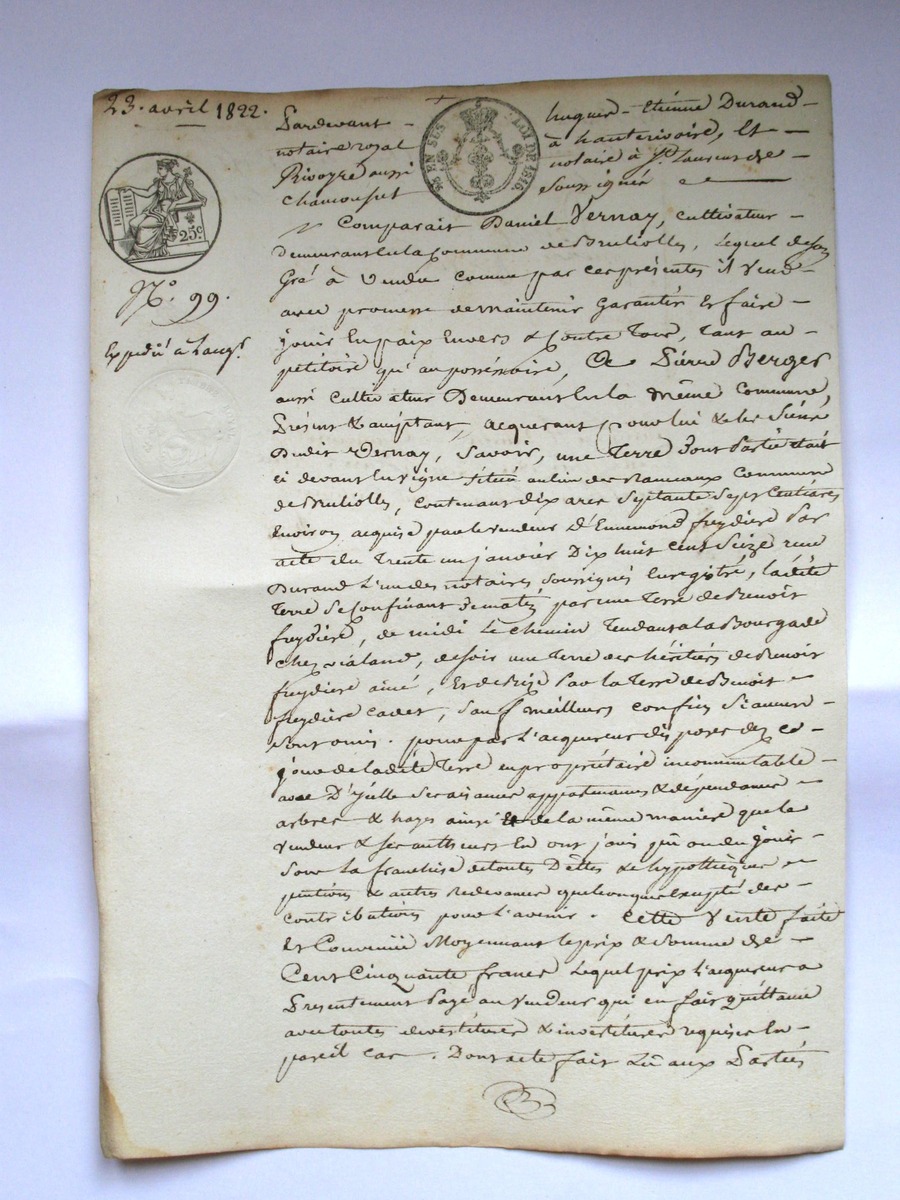 23. avril 1822.
Pardevant hugues-Etienne Durand
notaire royal à hauterivoire, Et
Rivoyre aussi notaire à St. Laurent de
chamousset soussignés
EN SUS LOI DE 1816
25c
No. 99.
Expedié à
Comparait Daniel Vernay, cultivateur
Demeurant En la Commune de Bruliolles, Lequel de son
Gré à Vendu comme par ces présentes il Vend
avec promesse de maintenir Garantir Et faire
jouir En paix Envers & Contre Tous, Tant au
petitoire qu'au possessoire, à Pierre Berger
aussi Cultivateur Demeurant En la même Commune,
Présent & acceptant, acquerant pour lui & les Siens
Dudit Vernay, Savoir, une Terre Dont Partie était
ci devant En vigne située au lieu des Rameaux Commune
de Bruliolles, Contenant dix ares Septante Sept Centiares
Environ acquise par le vendeur D'Ennemond freydiere Par
acte du Trente un janvier Dix huit cent Seize reçu
Durand L'un des notaires soussignés Enregistré, ladite
Terre Se Confinant De matin par une Terre de Benoit
freydiere, de midi Le chemin Tendant à la Bourgade
chez vialand, de soir une Terre des héritiers de Benoit
freydiere ainé, Et de Bize Par la Terre de Benoit
freydiere cadet, Sauf meilleurs confins Si aucuns
Sont omis. pour par L'acquereur disposer dez ce
jour de ladite Terre en propriétaire incommutable
avec D'icelle Ses aisances appartenances & dépendances
arbres & hayes ainsi Et de la même maniere que le
vendeur & ses autheurs En ont joui ou du jouir
Sous la franchise de toutes Dettes & hypothèques
pensions & autres redevances quelconques Excepté des
contributions pour L'avenir. Cette Vente faite
Et Convenüe Moyennant le prix & Somme de
Cent Cinquante francs Lequel prix L'acquereur a
Presentement Payé au Vendeur qui en fait quittance
avec toutes devestitures & investitures requises En
pareil cas. Dont acte fait Lû aux Parties